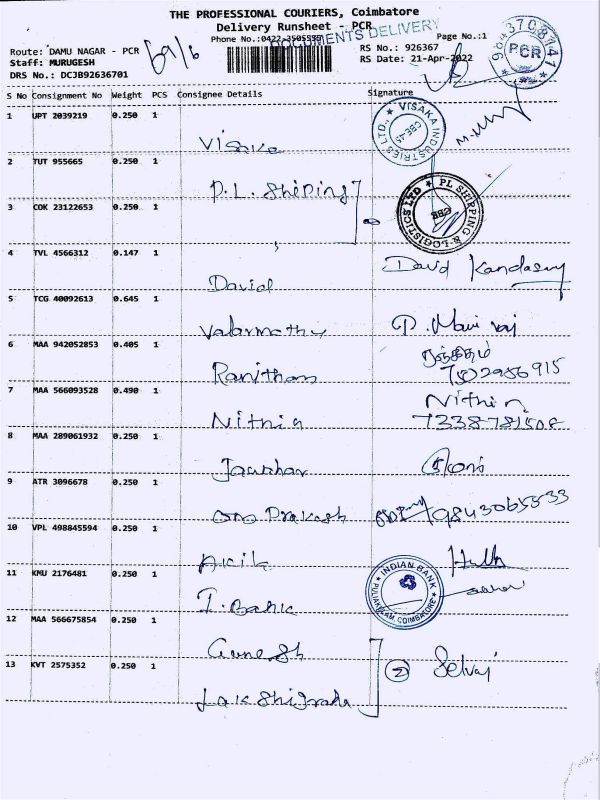 THE PROFESSIONAL COURIERS, Coimbatore
Delivery Runsheet - PCR
DOCUMENTS DELIVERY
Phone No.:0422-3505555 Page No.:1
Route: DAMU NAGAR - PCR 69/6 RS No.: 926367
Staff: MURUGESH RS Date: 21-Apr-2022
DRS No.: DCJB92636701
9843708141 PCR
S No Consignment No Weight PCS Consignee Details Signature
1 UPT 2039219 0.250 1
VISAKA INDUSTRIES LTD., CBE-45
Visaka
2 TUT 955665 0.250 1
P.L. Shiping
PL SHIPPING & LOGISTICS LTD
3 COK 23122653 0.250 1
4 TVL 4566312 0.147 1
David David Kandasamy
5 TCG 40092613 0.645 1
Valarmathy
6 MAA 942052853 0.405 1
ரஞ்சிதம்
Ranitham 7502986915
7 MAA 566093528 0.490 1
Nithin
Nithin 7338781508
8 MAA 289061932 0.250 1
Jawahar
9 ATR 3096678 0.250 1
Om Prakash 9843065333
10 VPL 498845594 0.250 1
Akila
11 KMU 2176481 0.250 1
INDIAN BANK PULIAKULAM, COIMBATORE
I. Bank
12 MAA 566675854 0.250 1
Ganesh
13 KVT 2575352 0.250 1 2 Selvaj